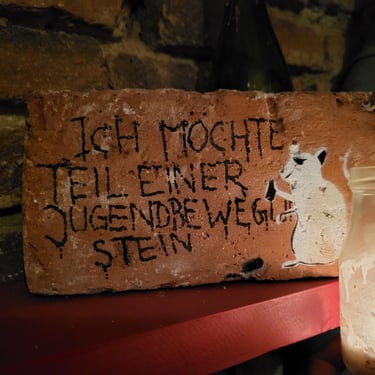 ICH MÖCHTE
TEIL EINER
JUGENDBEWEGUNG
STEIN